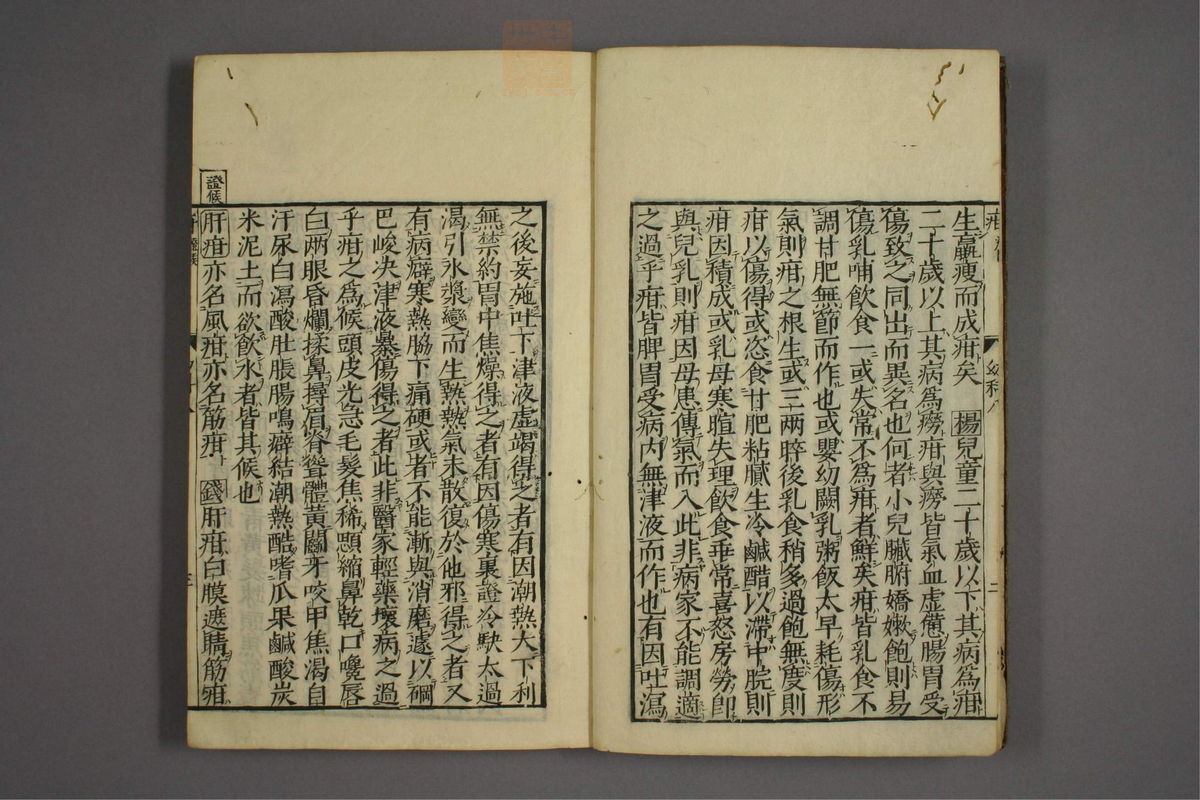 生羸瘦而成疳矣 楊兒童二十歲以下其病爲疳
二十歲以上其病爲癆疳與癆皆氣血虛憊腸胃受
傷致之同出而異名也何者小兒臟腑嬌嫩飽則易
傷乳哺飲食一或失常不爲疳者鮮矣疳皆乳食不
調甘肥無節而作也或嬰幼闕乳粥飯太早耗傷形
氣則疳之根生或三兩晬後乳食稍多過飽無度則
疳以傷得或恣食甘肥粘膩生冷鹹醋以滯中脘則
疳因積成或乳母寒暄失理飲食乖常喜怒房勞卽
與兒乳則疳因母患傳氣而入此非病家不能調適
之過乎疳皆脾胃受病内無津液而作也有因吐瀉
之後妄施吐下津液虛竭得之者有因潮熱大下利
無禁約胃中焦燥得之者有因傷寒裏證冷駃太過
渴引水漿變而生熱熱氣未散復於他邪得之者又
有病癖寒熱脇下痛硬或者不能漸與消磨遽以硇
巴峻决津液暴傷得之者此非醫家輕藥壞病之過
乎疳之爲候頭皮光急毛髮焦稀顋縮鼻乾口嚵唇
白兩眼昏爛揉鼻撏眉脊聳體黃鬭牙咬甲焦渴自
汗尿白瀉酸肚脹腸鳴癖結潮熱酷嗜瓜果鹹酸炭
米泥土而欲飲水者皆其候也
證候
肝疳亦名風疳亦名筋疳 錢肝疳白膜遮睛筋疳